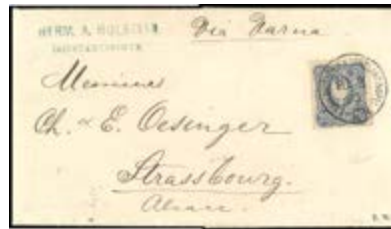 HERM. A. HOLSTEIN
CONSTANTINOPLE
Via Varna
Messieurs
Ch. & E. Oesinger
Strassbourg.
Alsace.